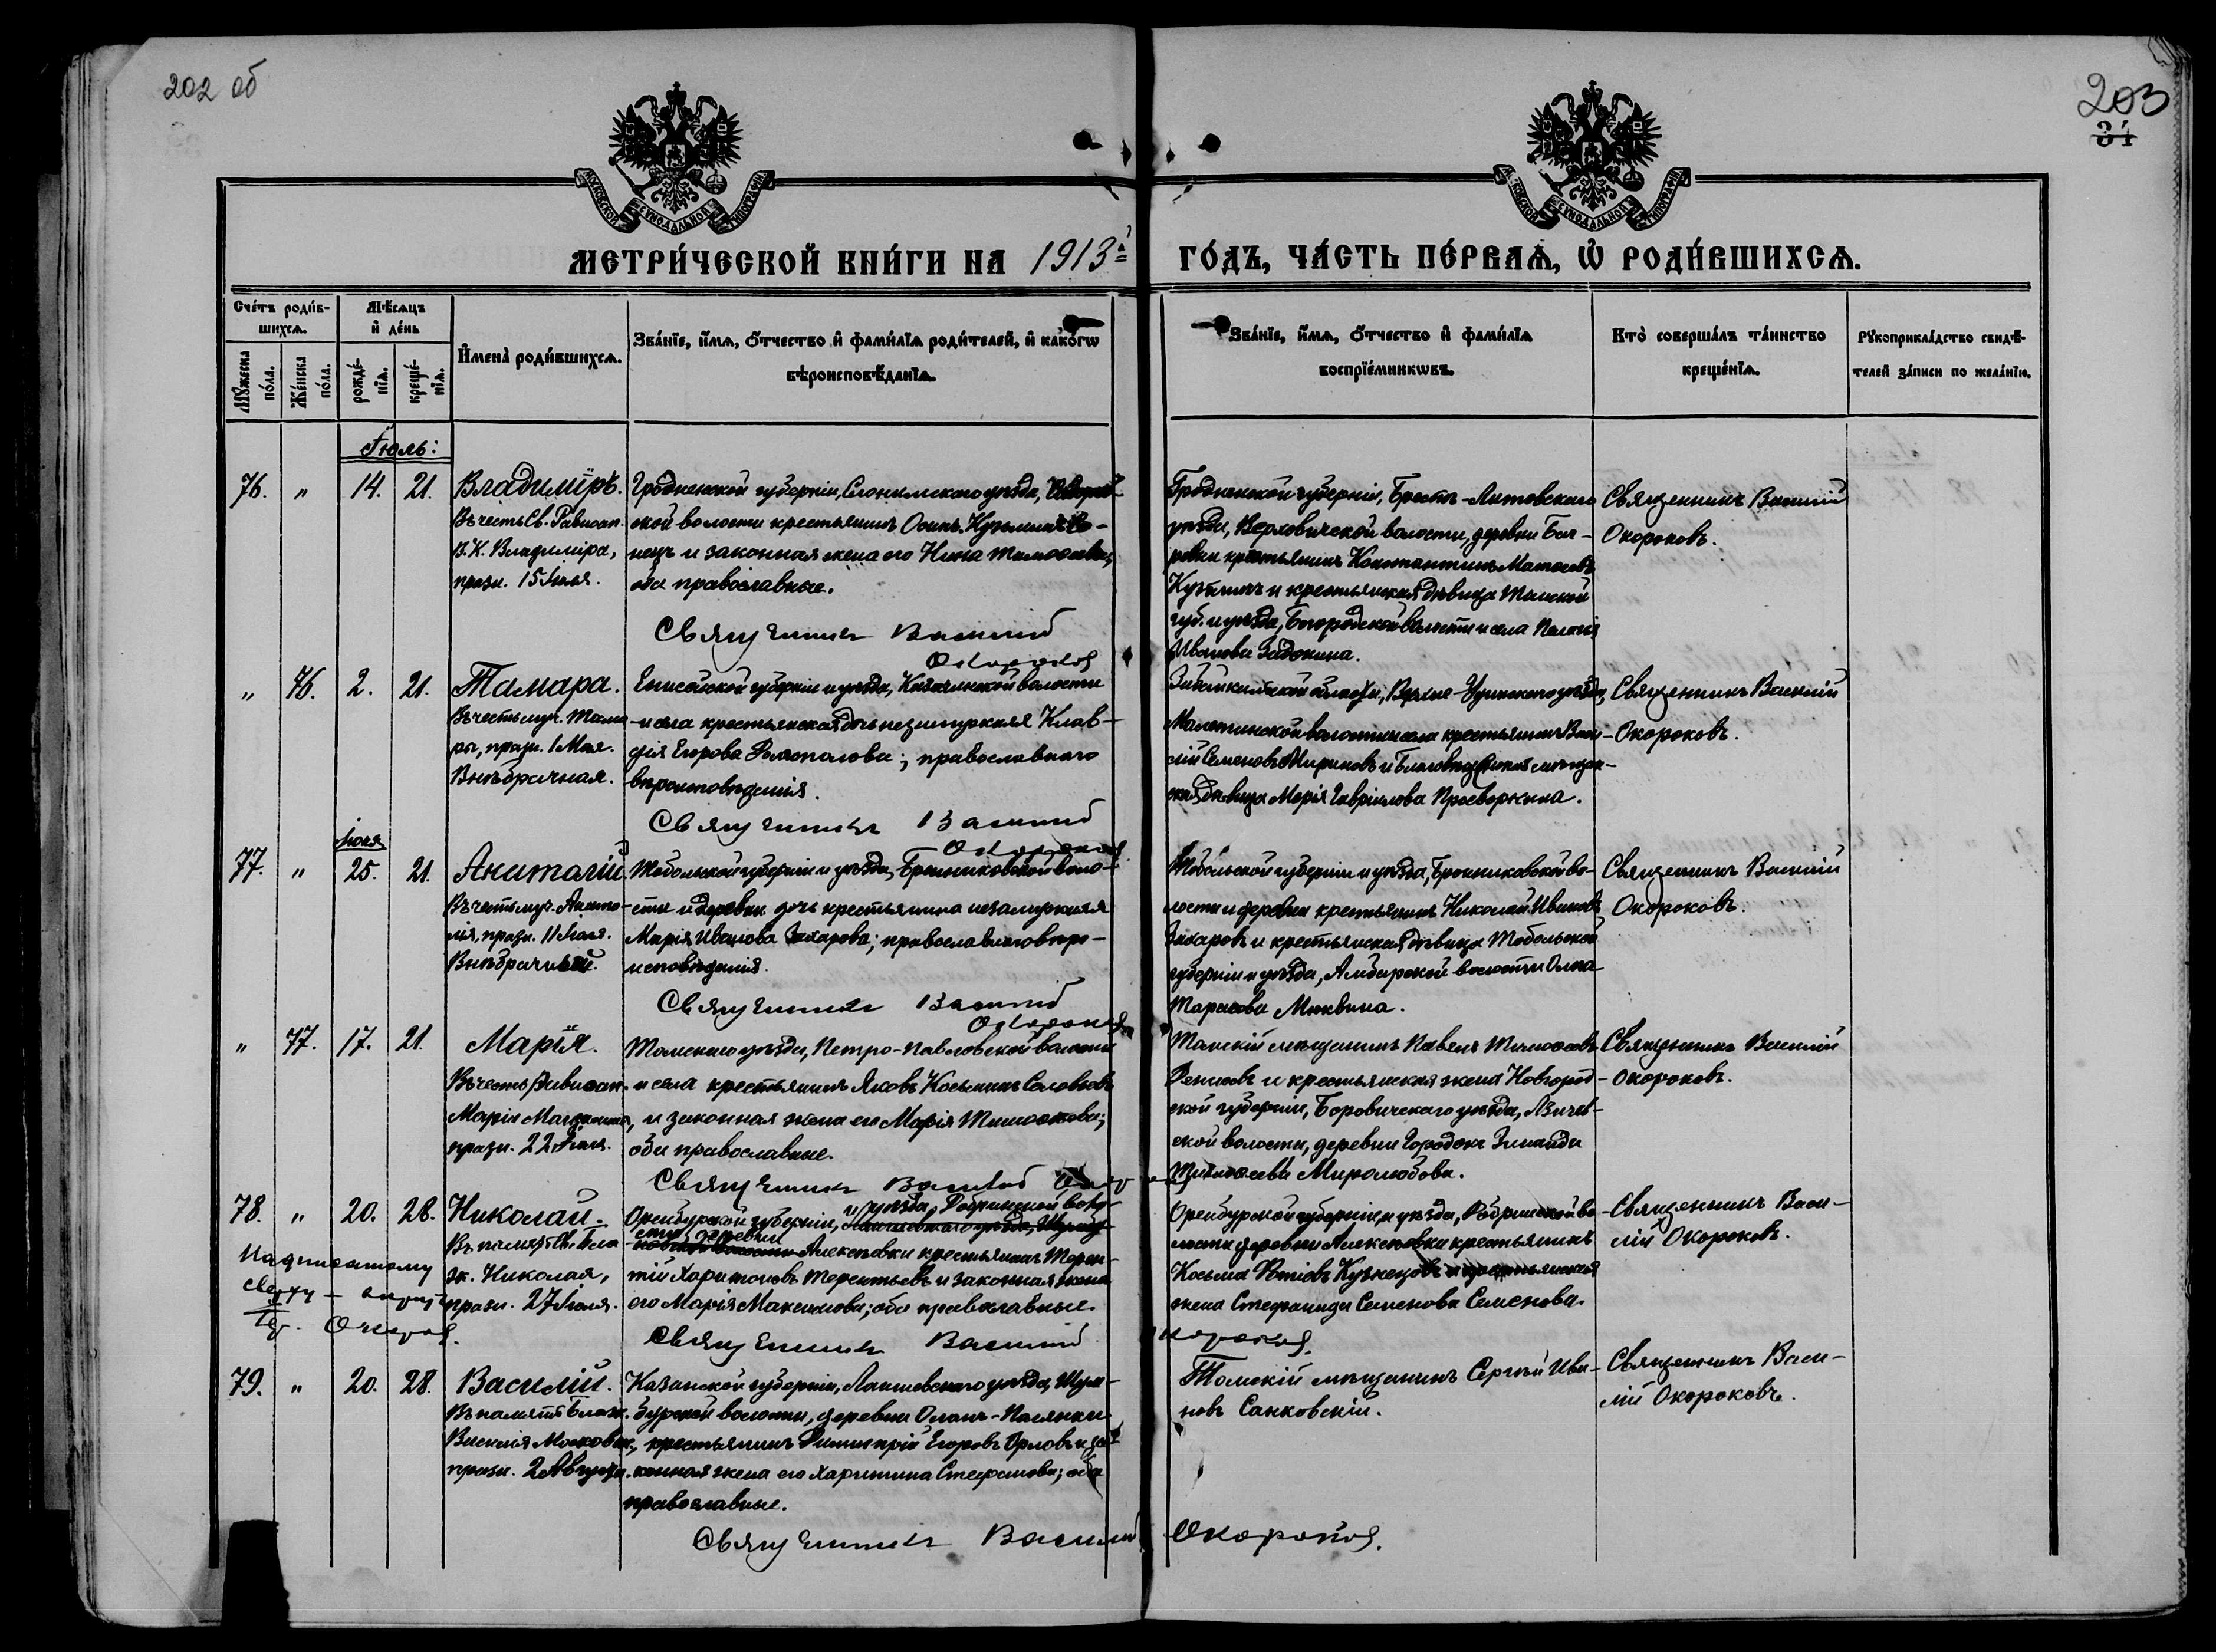 202 об
203
34
МОСКОВСКОЙ СѴНОДАЛЬНОЙ ТИПОГРАФІИ
МОСКОВСКОЙ СѴНОДАЛЬНОЙ ТИПОГРАФІИ
МЕТРИ́ЧЕСКОЙ КНИ́ГИ НА 1913й
ГО́ДЪ, ЧА́СТЬ ПЕ́РВАѦ, Ѡ҆ РОДИ́ВШИХСѦ.
Сче́тъ роди́в-
шихсѧ.
Мꙋ́жеска по́ла.
Же́нска по́ла.
Мѣ́сѧцъ
и҆ де́нь
рожде́-
нїѧ.
креще́-
нїѧ.
И҆мена̀ роди́вшихсѧ.
Зва́нїе, и҆́мѧ, ѻ҆́тчество и҆ фами́лїѧ роди́телей, и҆ како́гѡ
вѣроисповѣ́данїѧ.
Зва́нїе, и҆́мѧ, ѻ҆́тчество и҆ фами́лїѧ
воспрїе́мникѡвъ.
Кто̀ соверша́лъ та́инство
креще́нїѧ.
Рꙋкоприкла́дство свидѣ́-
телей за́писи по жела́нїю.
Іюль:
76. " 14. 21. Владиміръ.
Въ честь Св. Равноап.
В. К. Владиміра,
празн. 15 Іюля.
Гродненской губерніи, Слонимскаго уѣзда,
ской волости крестьянинъ Осипъ Кузьминъ
нецъ и законная жена его Нина Тимоѳеева;
оба православные.
Священникъ Василій
Окороковъ
Гродненской губерніи, Брестъ-Литовскаго
уѣзда, Верховичской волости, деревни
крестьянинъ Константинъ Матѳеевъ
и крестьянская дѣвица Томской
губ. и уѣзда, Богородской волости и села Пелагія
Иванова Задонина.
Священникъ Василій
Окороковъ.
" 76. 2. 21. Тамара.
Въ честь муч. Тама-
ры, празн. 1 Мая.
Внѣбрачная.
Енисейской губерніи и уѣзда, Казачинской волости
и села крестьянская дочь незамужняя Клав-
дія Егорова; православнаго
вѣроисповѣданія.
Священникъ Василій
Окороковъ
Забайкальской области, Верхне-Удинскаго уѣзда,
Малетинской волости и села крестьянинъ Васи-
лій Семеновъ Мириновъ и Благовѣщенская мѣщан-
ская дѣвица Марія Гавріилова Просвирнина.
Священникъ Василій
Окороковъ.
Іюня
77. " 25. 21. Анатолій
Въ честь муч. Анато-
лія, празн. 11 Іюля.
Внѣбрачный.
Тобольской губерніи и уѣзда, Бронниковской воло-
сти и деревни дочь крестьянина незамужняя
Марія Иванова Захарова; православнаго вѣро-
исповѣданія.
Священникъ Василій
Окороковъ
Тобольской губерніи и уѣзда, Бронниковской во-
лости и деревни крестьянинъ Николай Ивановъ
Захаровъ и крестьянская дѣвица Тобольской
губерніи и уѣзда, волости Ольга
Тарасова Миквина.
Священникъ Василій
Окороковъ.
" 77. 17. 21. Марія.
Въ честь Равноап.
Маріи Магдалины,
празн. 22 Іюля.
Томскаго уѣзда, Петро-Павловской волости
и села крестьянинъ Яковъ Косьминъ Соловьевъ
и законная жена его Марія Тимоѳеева;
оба православные.
Священникъ Василій
Томскій мѣщанинъ Павелъ Тимоѳеевъ
Денисовъ и крестьянская жена Новгород-
ской губерніи, Боровичскаго уѣзда,
ской волости, деревни Городокъ Зинаида
Тимоѳеева Миролюбова.
Священникъ Василій
Окороковъ.
78. " 20. 28. Николай.
Въ память Св.
Николая,
празн. 27 Іюля.
Надписаному
сверху - вѣрить
Св. Окороковъ.
Оренбургской губерніи, и уѣзда, Добринской воло-
сти деревни
Алексѣевки крестьянинъ Терен-
тій Харитоновъ Терентьевъ и законная жена
его Марія Максимова; оба православные.
Священникъ Василій Окороковъ.
Оренбургской губерніи и уѣзда, Добринской во-
лости деревни Алексѣевки крестьянинъ
Косьма Кузнецовъ и крестьянская
жена Стефанида Семенова Семенова.
Священникъ Васи-
лій Окороковъ.
79. " 20. 28. Василій.
Въ память Блаж.
Василія Московск.,
празн. 2 Августа.
Казанской губерніи, Лаишевскаго уѣзда, Шум-
бурской волости, деревни Оланъ-Полянки
крестьянинъ Димитрій Егоровъ Орловъ и за-
конная жена его Харитина Стефанова; оба
православные.
Священникъ Василій Окороковъ.
Томскій мѣщанинъ Сергѣй Ива-
новъ Санковскій.
Священникъ Васи-
лій Окороковъ.